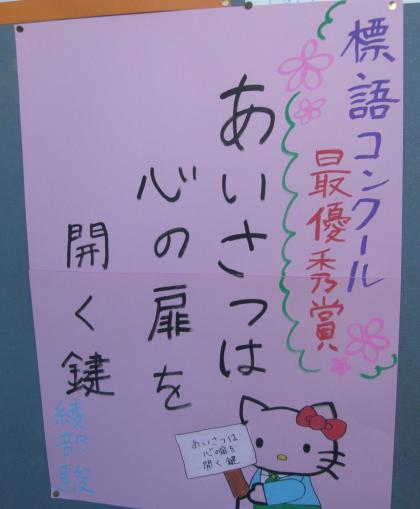 標語コンクール
最優秀賞
あいさつは
心の扉を
開く鍵
綾部駿
あいさつは
心の扉を
開く鍵